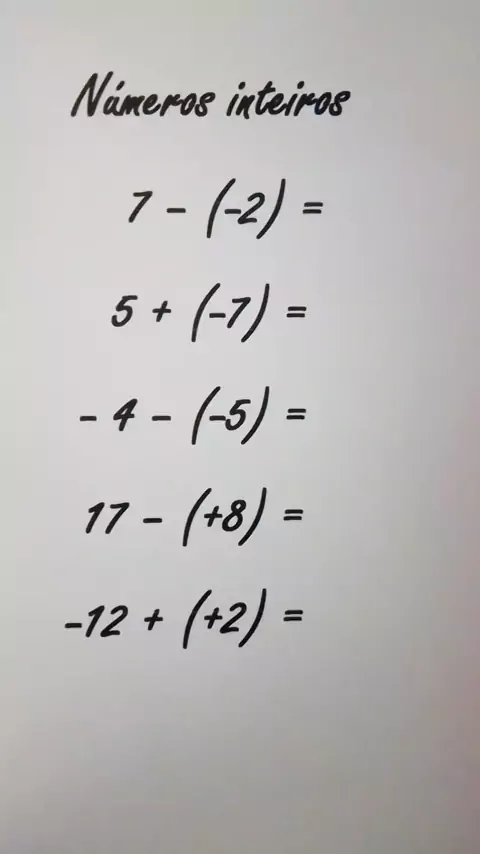 Números inteiros
7 - (-2) =
5 + (-7) =
- 4 - (-5) =
17 - (+8) =
-12 + (+2) =